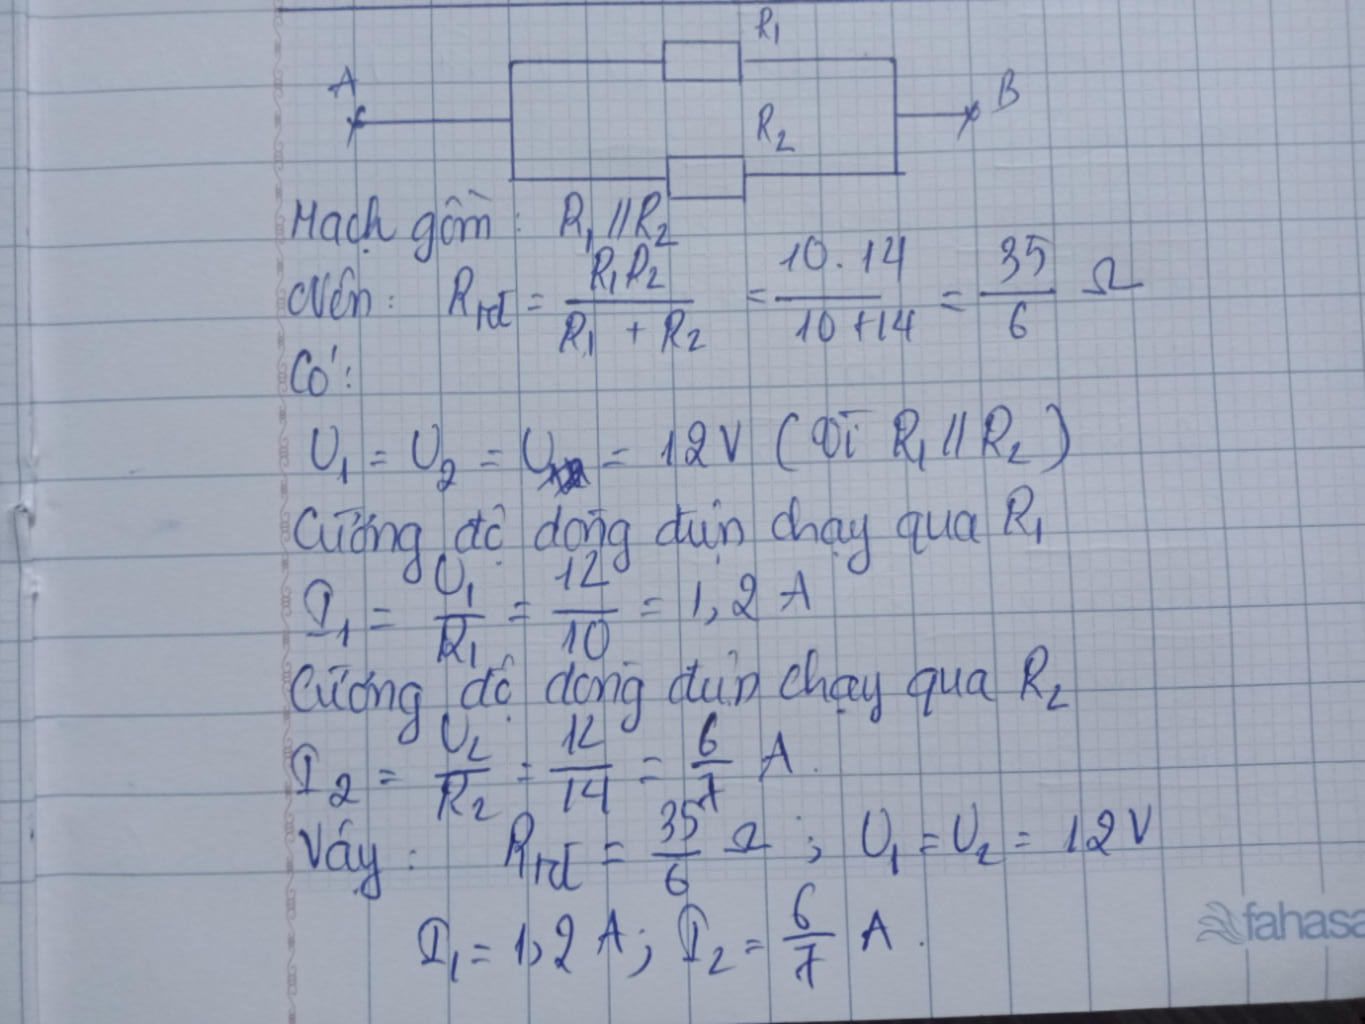 R₁
A
B
R₂
Mạch gồm : R₁ // R₂
Nên : Rtđ = R₁R₂ / (R₁ + R₂) = 10 . 14 / (10 + 14) = 35/6 Ω
Có :
U₁ = U₂ = U = 12 V ( Vì R₁ // R₂ )
Cường độ dòng điện chạy qua R₁
I₁ = U₁/R₁ = 12/10 = 1,2 A
Cường độ dòng điện chạy qua R₂
I₂ = U₂/R₂ = 12/14 = 6/7 A .
Vậy : Rtđ = 35/6 Ω ; U₁ = U₂ = 12 V
I₁ = 1,2 A ; I₂ = 6/7 A .
fahasa